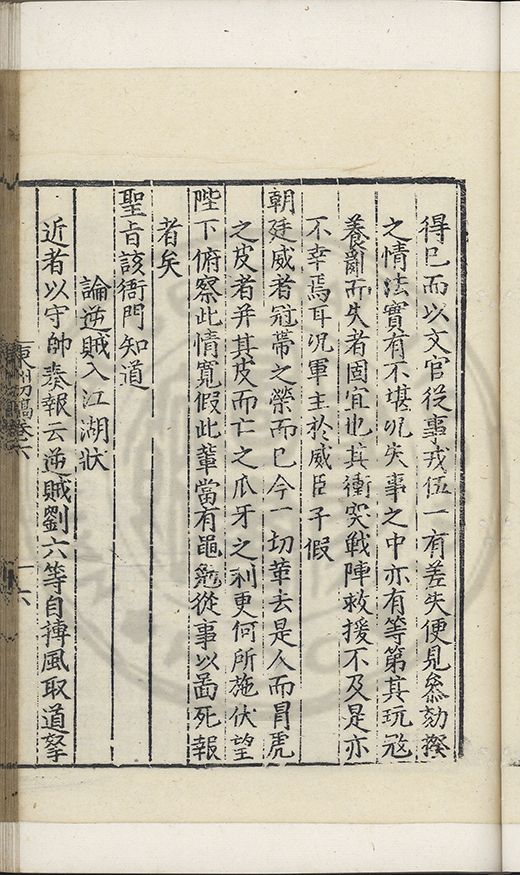 得已而以文官従事戎伍一有差失便見叅劾揆
之情法實有不堪况失事之中亦有等第其玩寇
養亂而失者固宜也其衝突戰陣救援不及是亦
不幸焉耳况軍主於威臣子假
朝廷威者冠帶之榮而已今一切革去是人而冐虎
之皮者并其皮而亡之瓜牙之利更何所施伏望
陛下俯察此情寬假此輩當有黽勉從事以啚死報
者矣
聖旨該衙門知道
論逆賊入江湖狀
近者以守帥奏報云逆賊劉六等自摶風取道孥
六